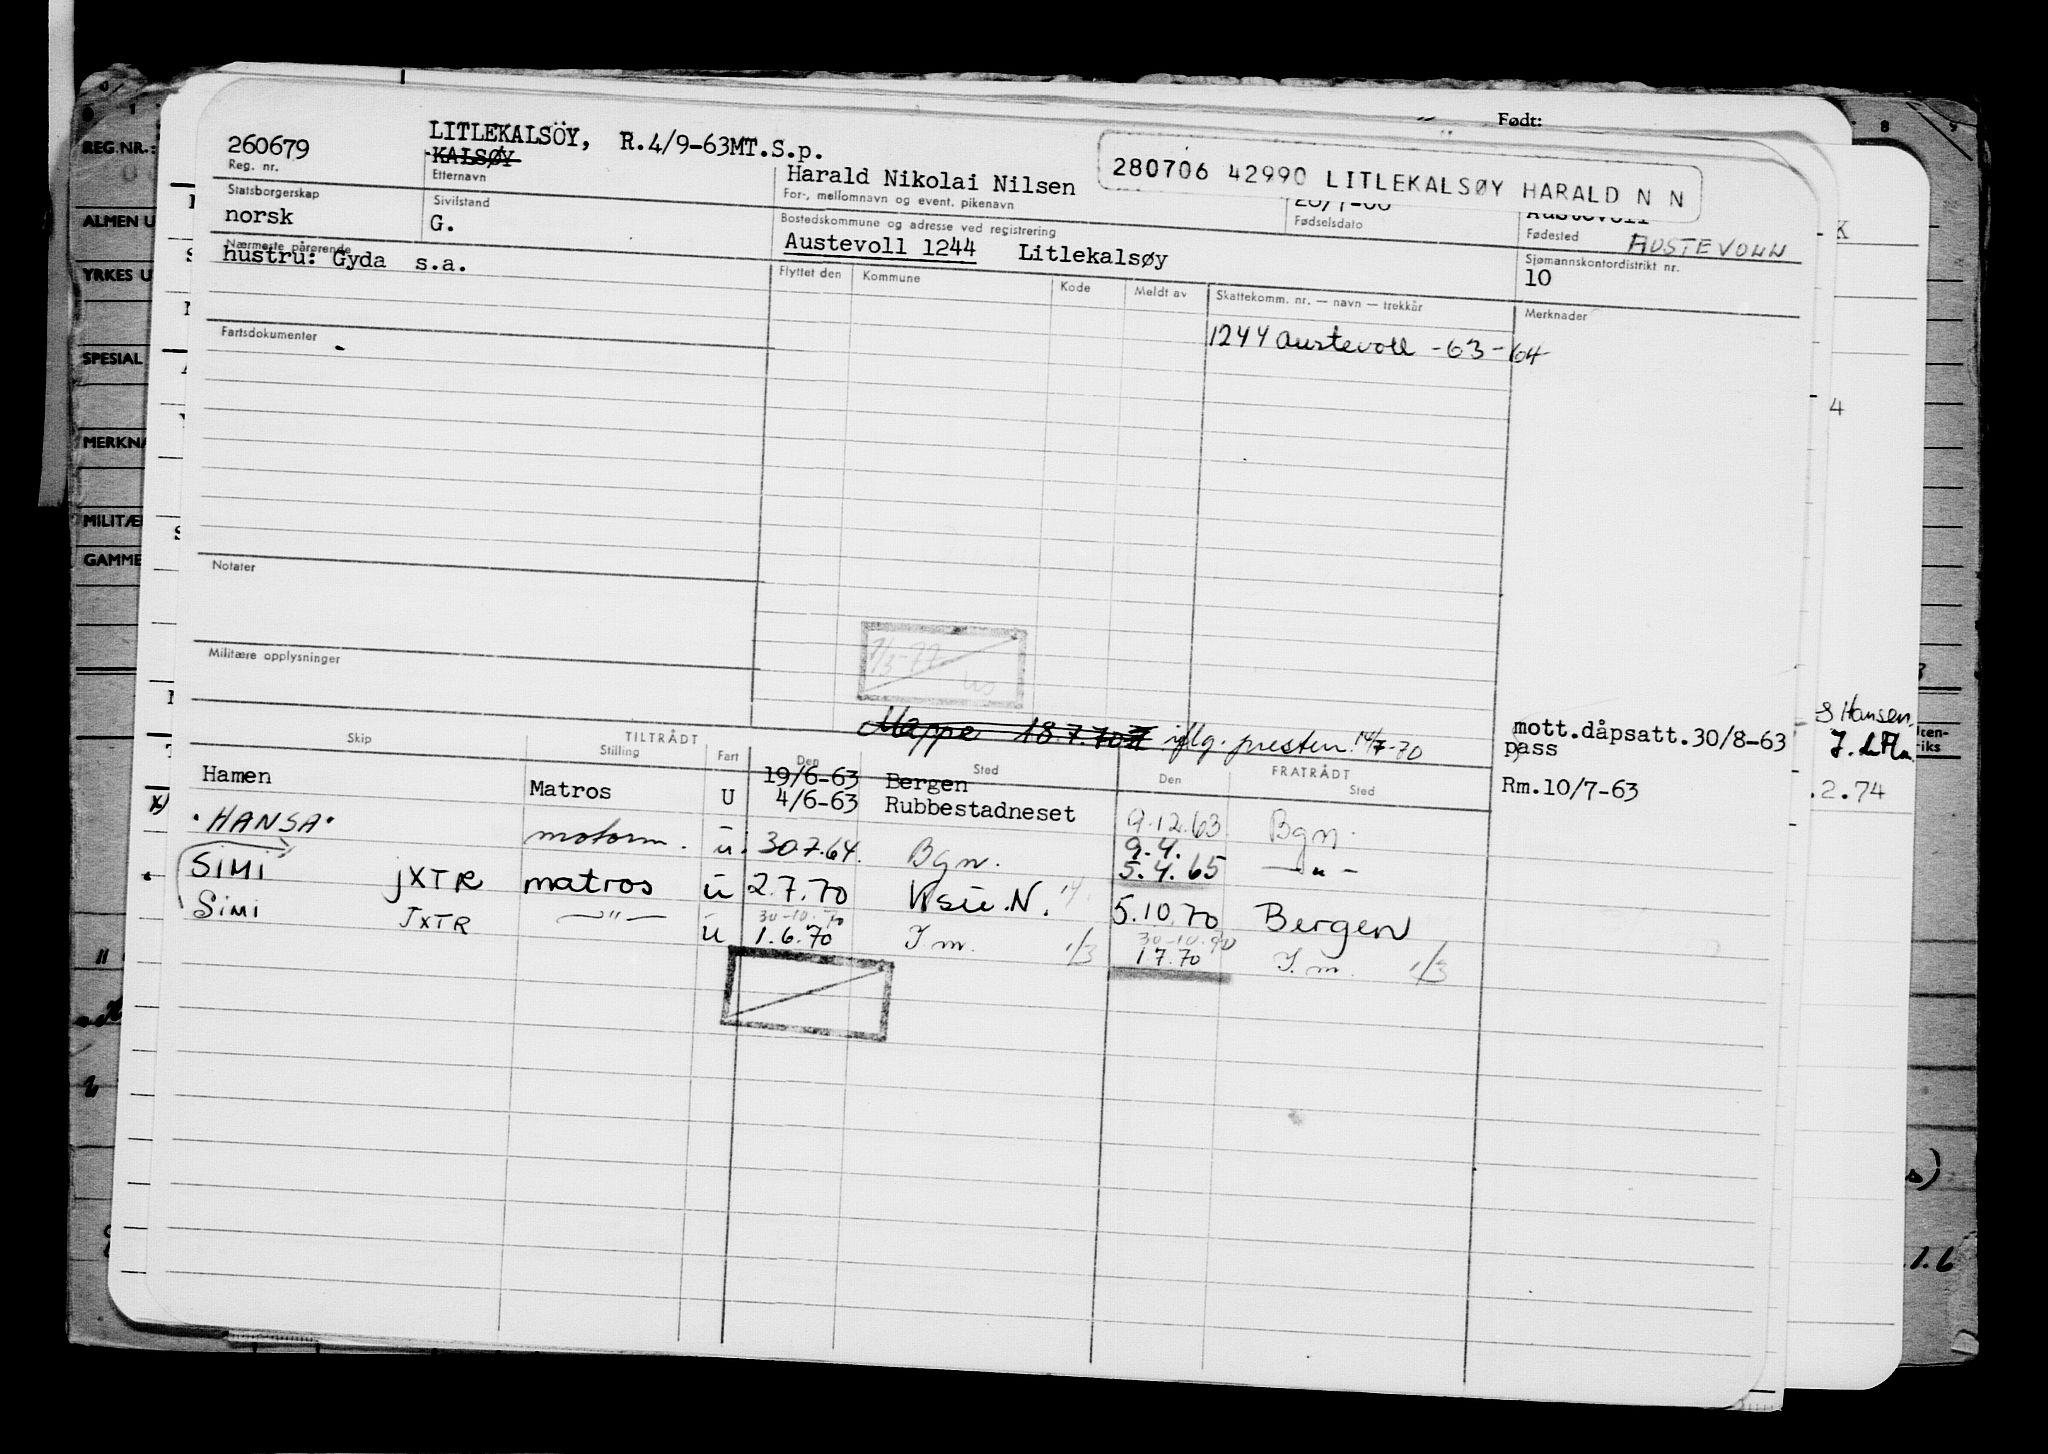 Født:
REG.NR.:
ALMEN U
YRKES U
SPESIAL
MERKNA
MILITÆ
GAMME
260679
LITLEKALSÖY, R.4/9-63MT.S.p.
KALSØY
Reg. nr.
Etternavn
Harald Nikolai Nilsen
280706 42990 LITLEKALSØY HARALD N N
For-, mellomnavn og event. pikenavn
Fødselsdato
Austevoll
Fødested AUSTEVOLL
Statsborgerskap
norsk
Sivilstand
G.
Bostedskommune og adresse ved registrering
Austevoll 1244 Litlekalsøy
Sjømannskontordistrikt nr.
10
Nærmeste pårørende
hustru: Gyda s.a.
Flyttet den Kommune Kode Meldt av Skattekomm. nr. — navn — trekkår Merknader
1244 Austevoll -63-64
Fartsdokumenter
Notater
Militære opplysninger
Mappe 18.7.70 iflg. presten 14/7-70
mott.dåpsatt.30/8-63
pass
Rm.10/7-63
Skip TILTRÅDT Stilling Fart Den Sted Den FRATRÅDT Sted
Hamen Matros U 19/6-63 Bergen
4/6-63 Rubbestadneset 9.12.63 Bgn.
HANSA motorm. u. 30.7.64. Bgn. 9.4.
5.4.65 —"—
SIMI JXTR matros u 2.7.70 5.10.70 Bergen
SIMI JXTR —"— u 30-10.70
1.6.70 I m. 1/3 1.7.70 I. m. 1/3
S Hansen
.2.74
1.6